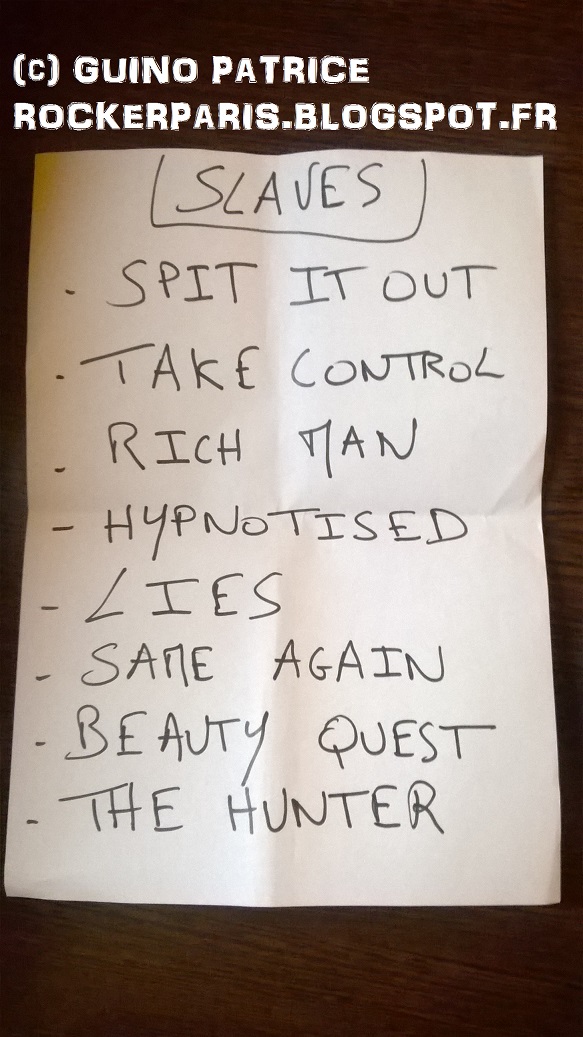 (C) GUINO PATRICE
ROCKERPARIS.BLOGSPOT.FR
SLAVES
- SPIT IT OUT
- TAKE CONTROL
- RICH MAN
- HYPNOTISED
- LIES
- SAME AGAIN
- BEAUTY QUEST
- THE HUNTER